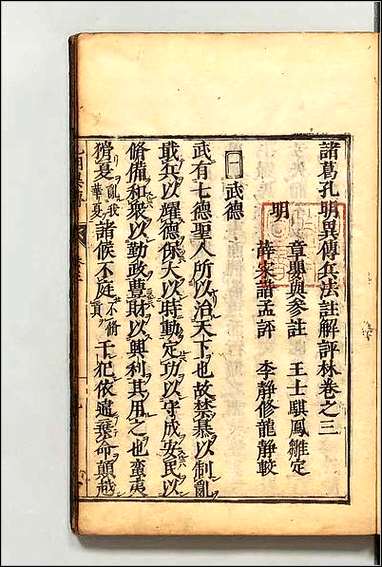 諸葛孔明異傳兵法註解評林卷之三
明
章嬰與參註 王士騏鳳雛定
薛寀諧孟評 李靜修龍靜較
一 武德
武有七德聖人所以治天下也故禁暴以制亂
戢兵以耀德保大以時動定功以守成安民以
脩備和衆以勤政豊財以興利其用之也蠻夷
猾夏亂我華夏諸侯不庭不脩貢干犯依違棄命顛越